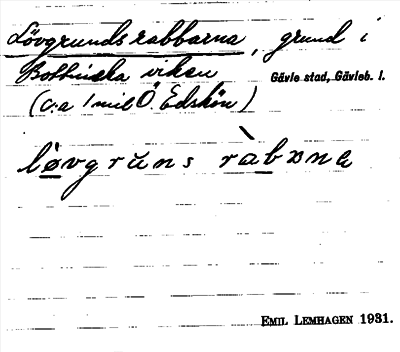 Lövgrundsrabbarna, grund i
Bottniska viken Gävle stad, Gävleb. l.
(c:a 1 mil Ö. Edskön)
lövgruns rabɒna
EMIL LEMHAGEN 1931.